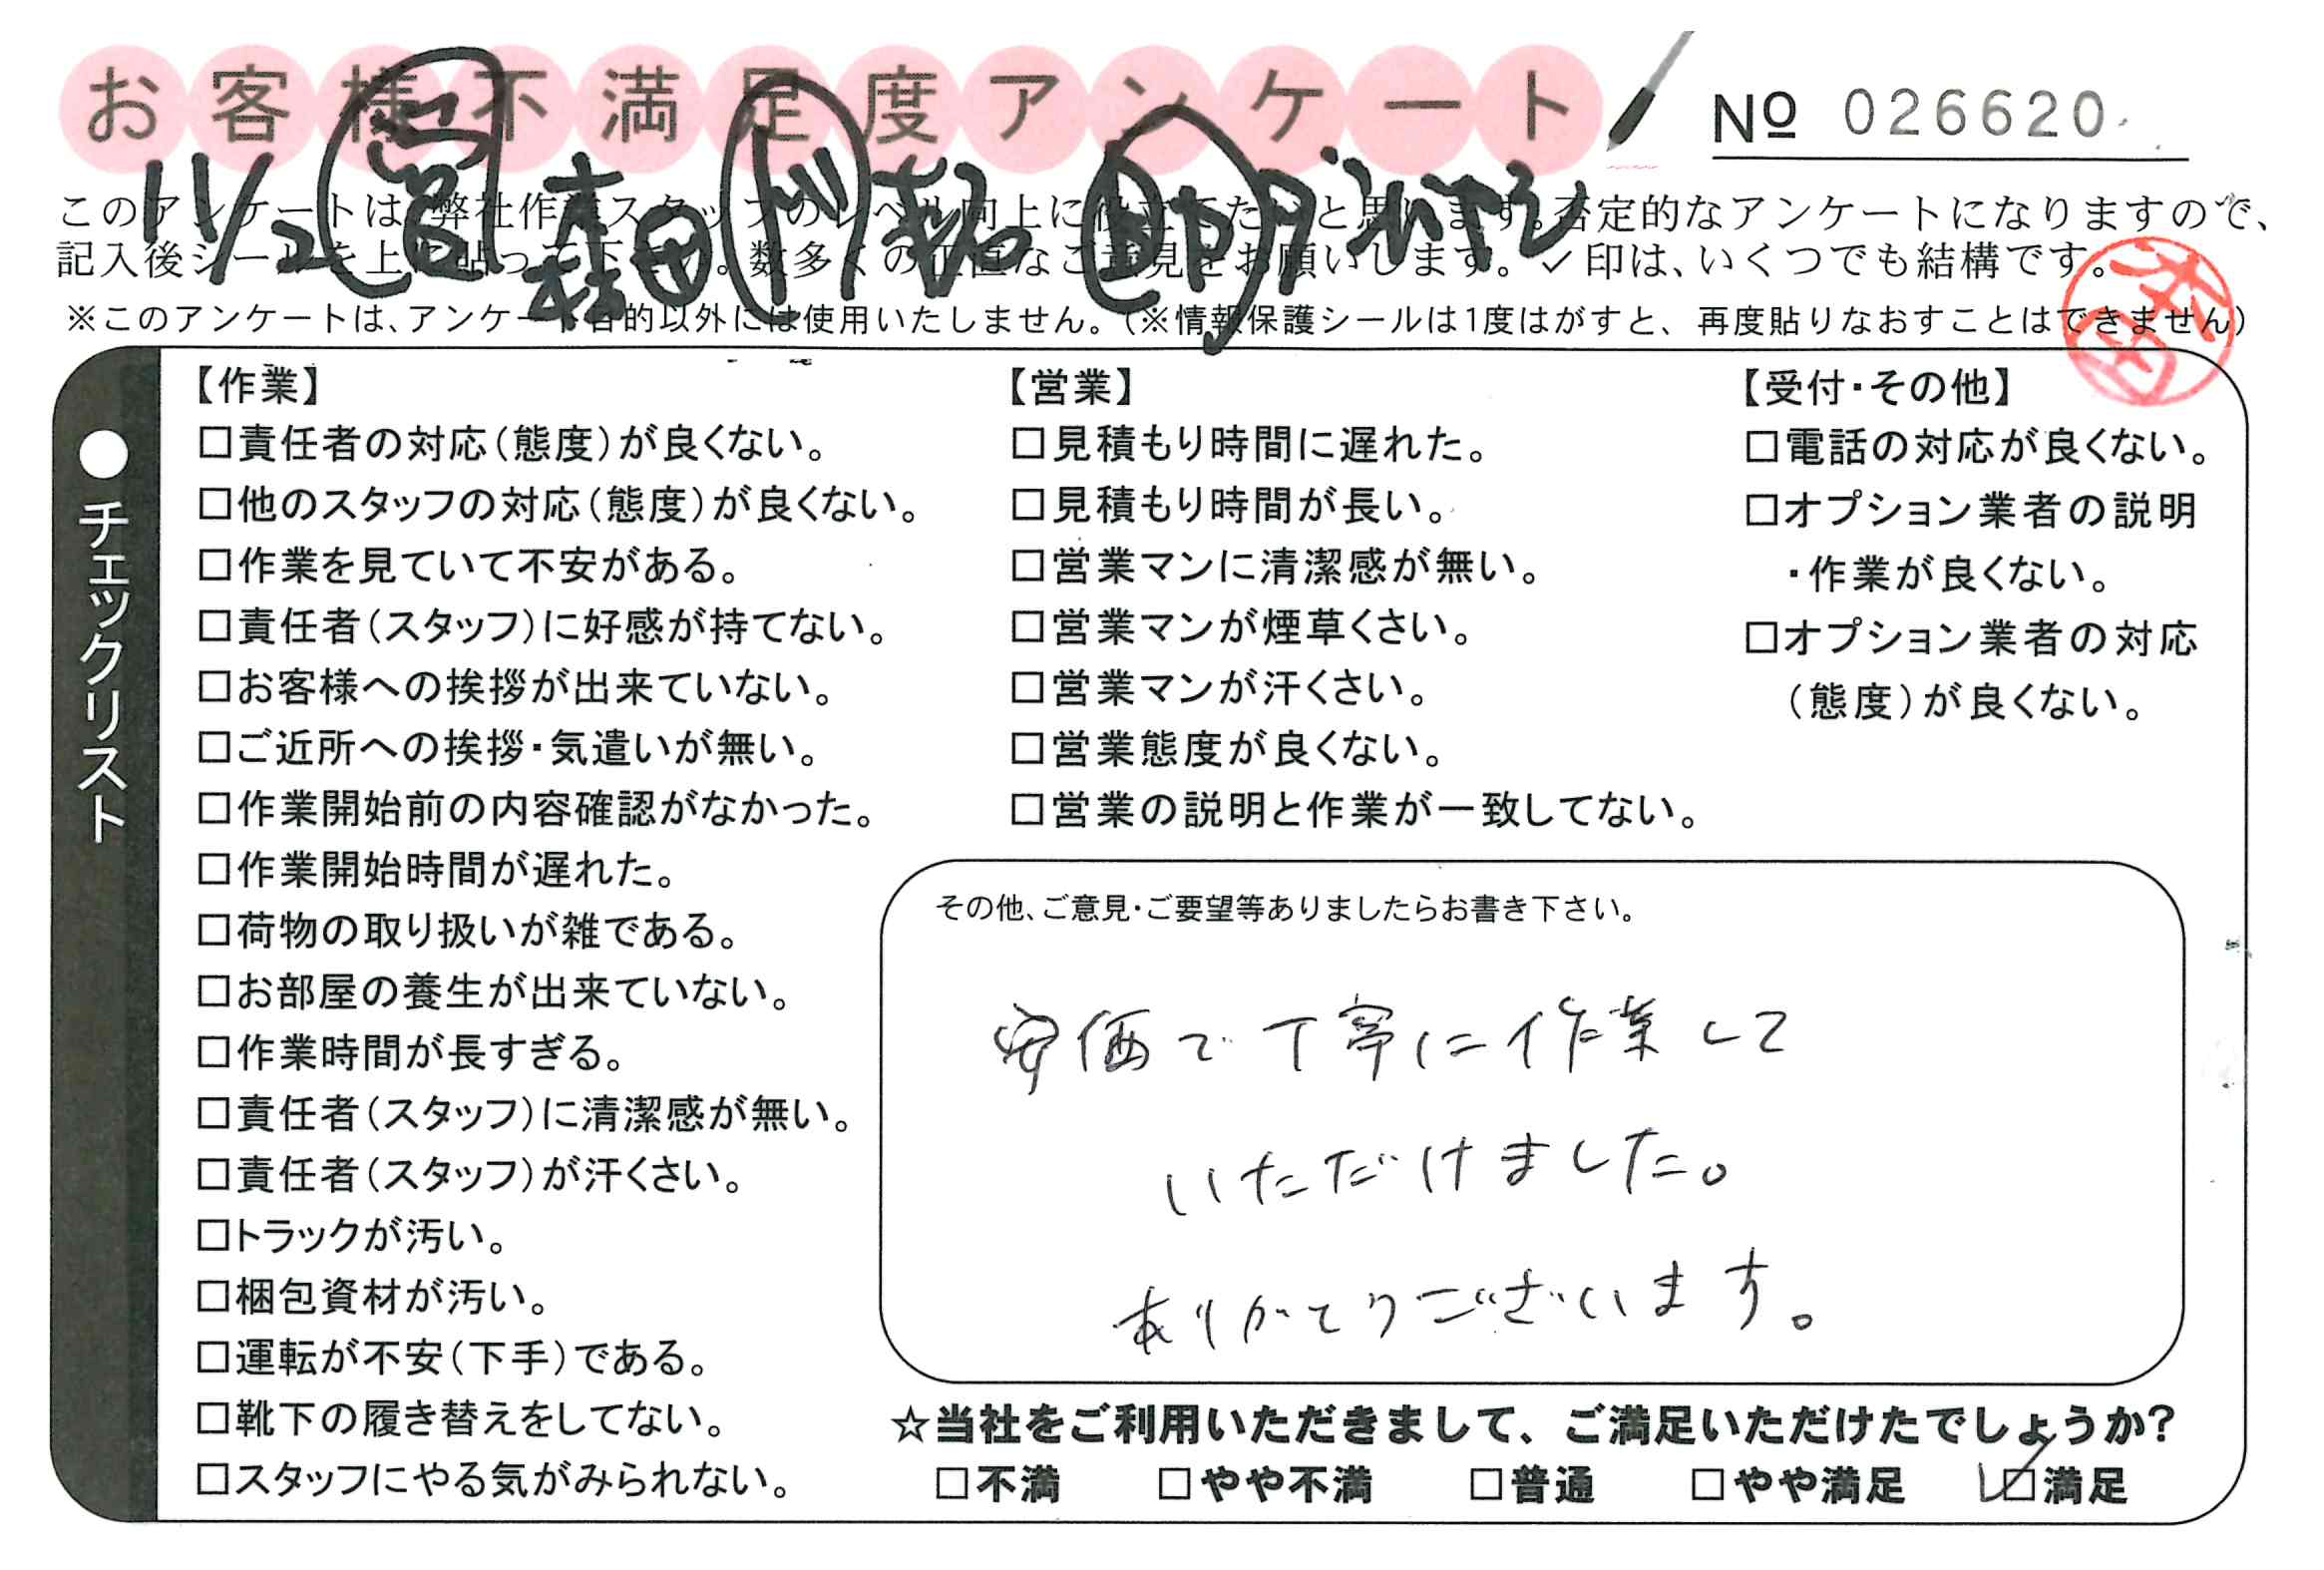 お客様不満足度アンケート
№ 026620
11/2 営
このアンケートは、弊社作業スタッフのレベル向上に役立てたいと思います。否定的なアンケートになりますので、
記入後シールを上に貼って下さい。数多くの正直なご意見をお願いします。✓印は、いくつでも結構です。
※このアンケートは、アンケート目的以外には使用いたしません。(※情報保護シールは1度はがすと、再度貼りなおすことはできません)
●チェックリスト
【作業】
□責任者の対応(態度)が良くない。
□他のスタッフの対応(態度)が良くない。
□作業を見ていて不安がある。
□責任者(スタッフ)に好感が持てない。
□お客様への挨拶が出来ていない。
□ご近所への挨拶・気遣いが無い。
□作業開始前の内容確認がなかった。
□作業開始時間が遅れた。
□荷物の取り扱いが雑である。
□お部屋の養生が出来ていない。
□作業時間が長すぎる。
□責任者(スタッフ)に清潔感が無い。
□責任者(スタッフ)が汗くさい。
□トラックが汚い。
□梱包資材が汚い。
□運転が不安(下手)である。
□靴下の履き替えをしてない。
□スタッフにやる気がみられない。
【営業】
□見積もり時間に遅れた。
□見積もり時間が長い。
□営業マンに清潔感が無い。
□営業マンが煙草くさい。
□営業マンが汗くさい。
□営業態度が良くない。
□営業の説明と作業が一致してない。
【受付・その他】
□電話の対応が良くない。
□オプション業者の説明
・作業が良くない。
□オプション業者の対応
(態度)が良くない。
その他、ご意見・ご要望等ありましたらお書き下さい。
安価で丁寧に作業して
いただけました。
ありがとうございます。
☆当社をご利用いただきまして、ご満足いただけたでしょうか?
□不満 □やや不満 □普通 □やや満足 ☑満足